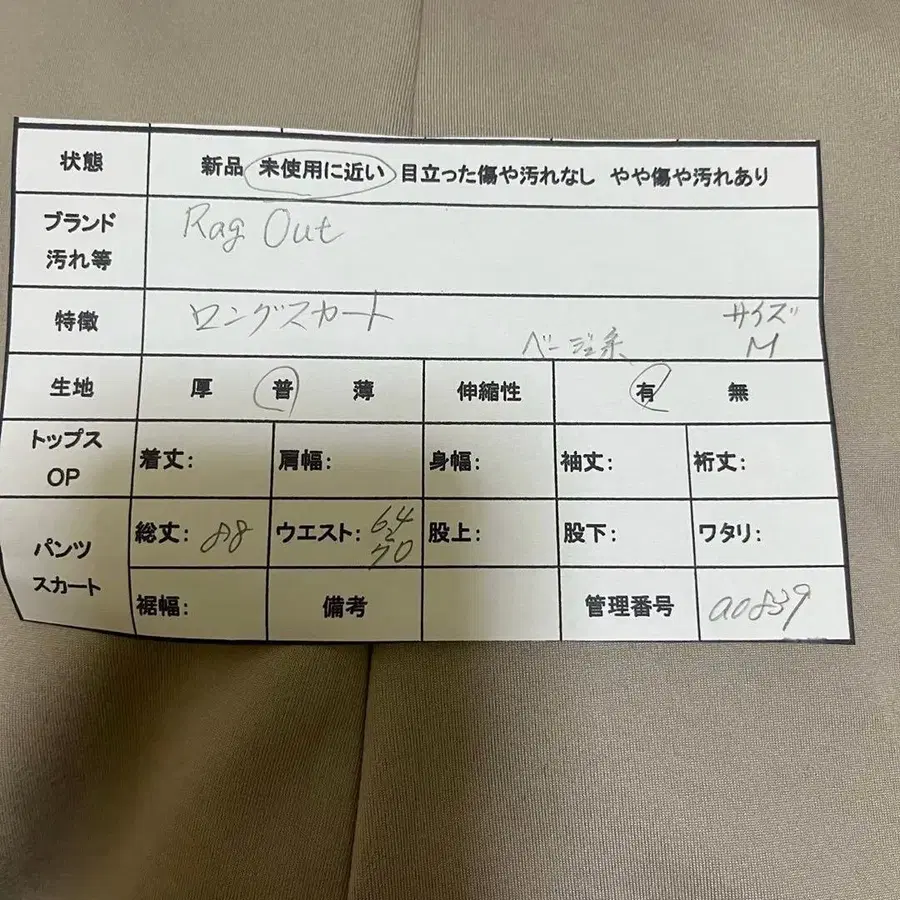 状態 新品 未使用に近い 目立った傷や汚れなし やや傷や汚れあり
ブランド
汚れ等
Rag Out
特徴 ロングスカート ベージュ系
サイズ
M
生地 厚 普 薄 伸縮性 有 無
トップス
OP
着丈: 肩幅: 身幅: 袖丈: 裄丈:
パンツ
スカート
総丈: 88 ウエスト: 64
2
70
股上: 股下: ワタリ:
裾幅: 備考 管理番号 a0839